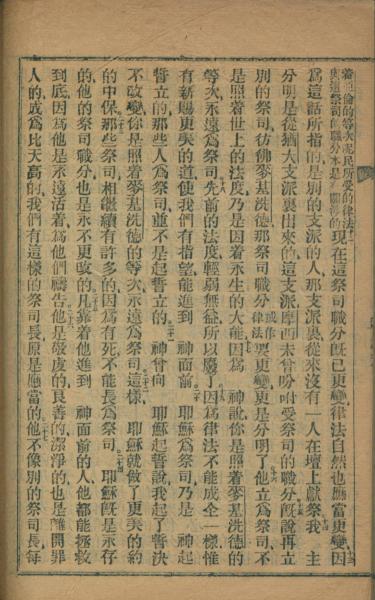 着亞倫的等次呢民所受的律法
與這祭司的職分本是相關涉的現在這祭司職分旣已更變律法自然也應當更變因
爲這話所指的是別的支派的人那支派裏從來沒有一人在壇上獻祭我 主
分明是從猶大支派裏出來的這支派摩西未曾吩咐受祭司的職分旣說再立
別的祭司彷彿麥基洗德那祭司職分或作律法要更變更是分明了他立爲祭司不
是照着世上的法度乃是因着永生的大能因爲 神說你是照着麥基洗德的
等次永遠爲祭司先前的法度輕弱無益所以廢了因爲律法不能成全一樣惟
有新賜更美的道使我們有指望能進到 神面前 耶穌爲祭司乃是 神起
誓立的那些人爲祭司並不是起誓立的 神曾向 耶穌起誓說我起了誓決
不改變你是照着麥基洗德的等次永遠爲祭司這樣 耶穌就做了更美的約
的中保那些祭司相繼續有許多的因爲有死不能長爲祭司 耶穌旣是永存
的他的祭司職分也是永不更改的凡靠着他進到 神面前的人他都能拯救
到底因爲他是永遠活着爲他們禱告他是敬虔的良善的潔淨的也是離開罪
人的成爲比天高的我們有這樣的祭司長原是應當的他不像別的祭司長每